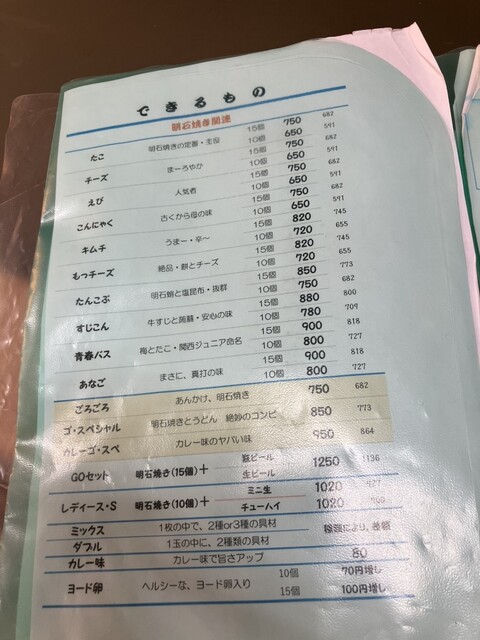 できるもの
明石焼き関連
たこ 明石焼きの定番・主役 15個 750 682
10個 650 591
チーズ まーろやか 15個 750 682
10個 650 591
えび 人気者 15個 750 682
10個 650 591
こんにゃく 古くから母の味 15個 750 682
10個 650 591
キムチ うまー・辛〜 15個 820 745
10個 720 655
もっチーズ 絶品・餅とチーズ 15個 820 745
10個 720 655
たんこぶ 明石蛸と塩昆布・抜群 15個 850 773
10個 750 682
すじこん 牛すじと蒟蒻・安心の味 15個 880 800
10個 780 709
青春バス 梅とたこ・関西ジュニア命名 15個 900 818
10個 800 727
あなご まさに、真打の味 15個 900 818
10個 800 727
ごろごろ あんかけ、明石焼き 750 682
ゴ・スペシャル 明石焼きとうどん 絶妙のコンビ 850 773
カレーゴ・スペ カレー味のヤバい味 950 864
GOセット 明石焼き(15個)＋ 瓶ビール
生ビール 1250 1136
レディース・S 明石焼き(10個)＋ ミニ生 1020 927
チューハイ 1020
ミックス 1枚の中で、2種or3種の具材
ダブル 1玉の中に、2種類の具材
カレー味 カレー味で旨さアップ 80
ヨード卵 ヘルシーな、ヨード卵入り 10個 70円増し
15個 100円増し